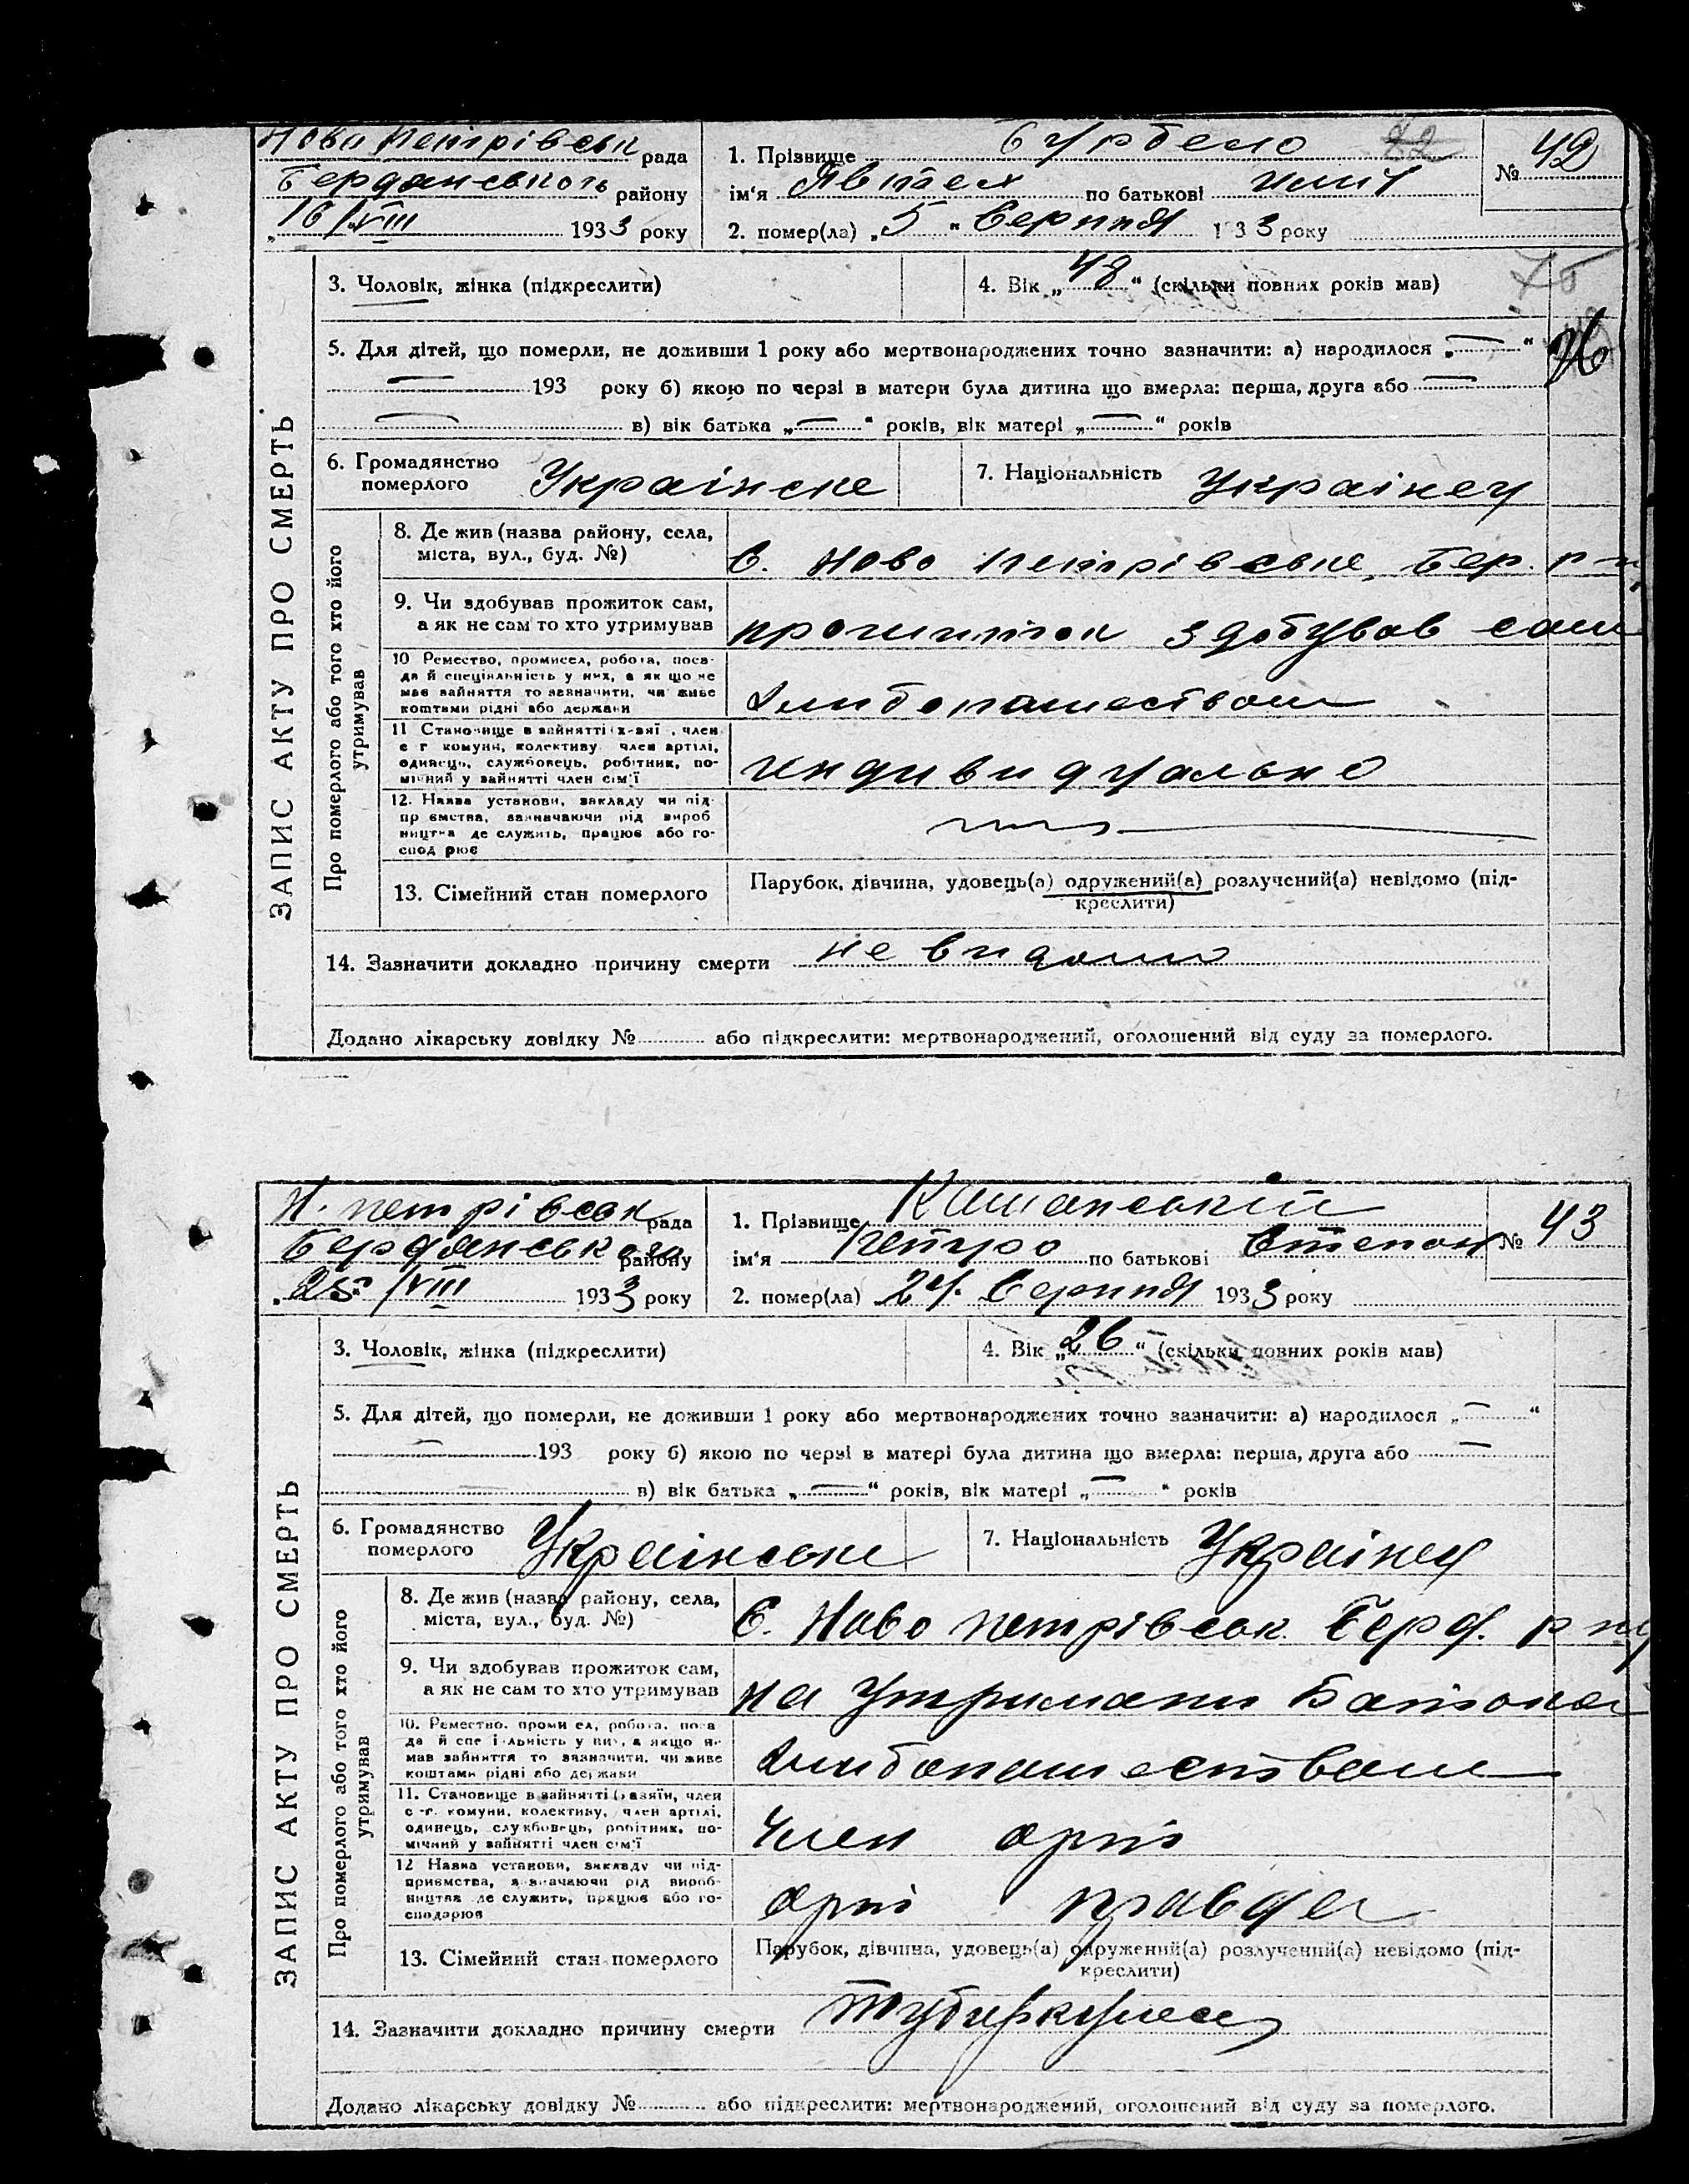 Ново Петрівськ рада
Бердянського району
„16/VIII 1933 року
1. Прізвище 22
ім‘я по батькові
2. помер(ла) „5“ Серпня 1 33 року
№ 42
3. Чоловік, жінка (підкреслити)
4. Вік „48“ (скільки повних років мав)
75
5. Для дітей, що померли, не доживши 1 року або мертвонароджених точно зазначити: а) народилося „—“
— 193 року б) якою по черзі в матери була дитина що вмерла: перша, друга або —
— в) вік батька „—“ років, вік матері „—“ років
6. Громадянство померлого Українске
7. Національність Українец
ЗАПИС АКТУ ПРО СМЕРТЬ
Про померлого або того хто його утримував
8. Де жив (назва району, села,
міста, вул., буд. №)
С. Ново Петрівське, Бер. р-н
9. Чи здобував прожиток сам,
а як не сам то хто утримував
прожиток здобував сам
10 Ремество, промисел, робота, поса-
да й спеціяльність у них, а як що не
має зайняття то зазначити, чи живе
коштами рідні або держави
Хлибопашеством
11 Становище в зайнятті (х-зяї , член
с г комуни, колективу член артілі,
одинець, службовець, робітник, по-
мічний у зайнятті член сім‘ї
индивидуально
12. Назва установи, закладу чи під-
пр ємства, зазначаючи рід вироб
ництва де служить, працює або го-
спод рює
13. Сімейний стан померлого
Парубок, дівчина, удовець(а) одружений(а) розлучений(а) невідомо (під-
креслити)
14. Зазначити докладно причину смерти не видомо
Додано лікарську довідку № або підкреслити: мертвонароджений, оголошений від суду за померлого.
Н. Петрівськ рада
Бердянського району
„25“/VIII 1933 року
1. Прізвище
ім‘я Петро по батькові Степан
2. помер(ла) 24. Серпня 1933 року
№ 43
3. Чоловік, жінка (підкреслити)
4. Вік „26“ (скільки повних років мав)
5. Для дітей, що померли, не доживши 1 року або мертвонароджених точно зазначити: а) народилося „—“
— 193 року б) якою по черзі в матері була дитина що вмерла: перша, друга або —
в) вік батька „—“ років, вік матері „—“ років
6. Громадянство померлого Українське
7. Національність Українец
ЗАПИС АКТУ ПРО СМЕРТЬ
Про померлого або того хто його утримував
8. Де жив (назва району, села,
міста, вул., буд. №)
С. Ново Петрівськ Берд. р-ну
9. Чи здобував прожиток сам,
а як не сам то хто утримував
на утримани Батька
10. Ремество, проми ел, робота, поса
да й спе і льність у них, а якщо н-
мав зайняття то зазначити, чи живе
коштами рідні або держави
Хлибопашеством
11. Становище в зайнятті (хазяїн, член
с -г. комуни, колективу, член артілі,
одинець, службовець, робітник, по-
мічний у зайнятті член сім‘ї
Член арт
12 Назва установи, закладу чи під-
приємства, зазначаючи рід вироб-
ництва де служить, працює або го-
сподарює
арт правда
13. Сімейний стан померлого
Парубок, дівчина, удовець(а) одружений(а) розлучений(а) невідомо (під-
креслити)
14. Зазначити докладно причину смерти
Додано лікарську довідку № або підкреслити: мертвонароджений, оголошений від суду за померлого.